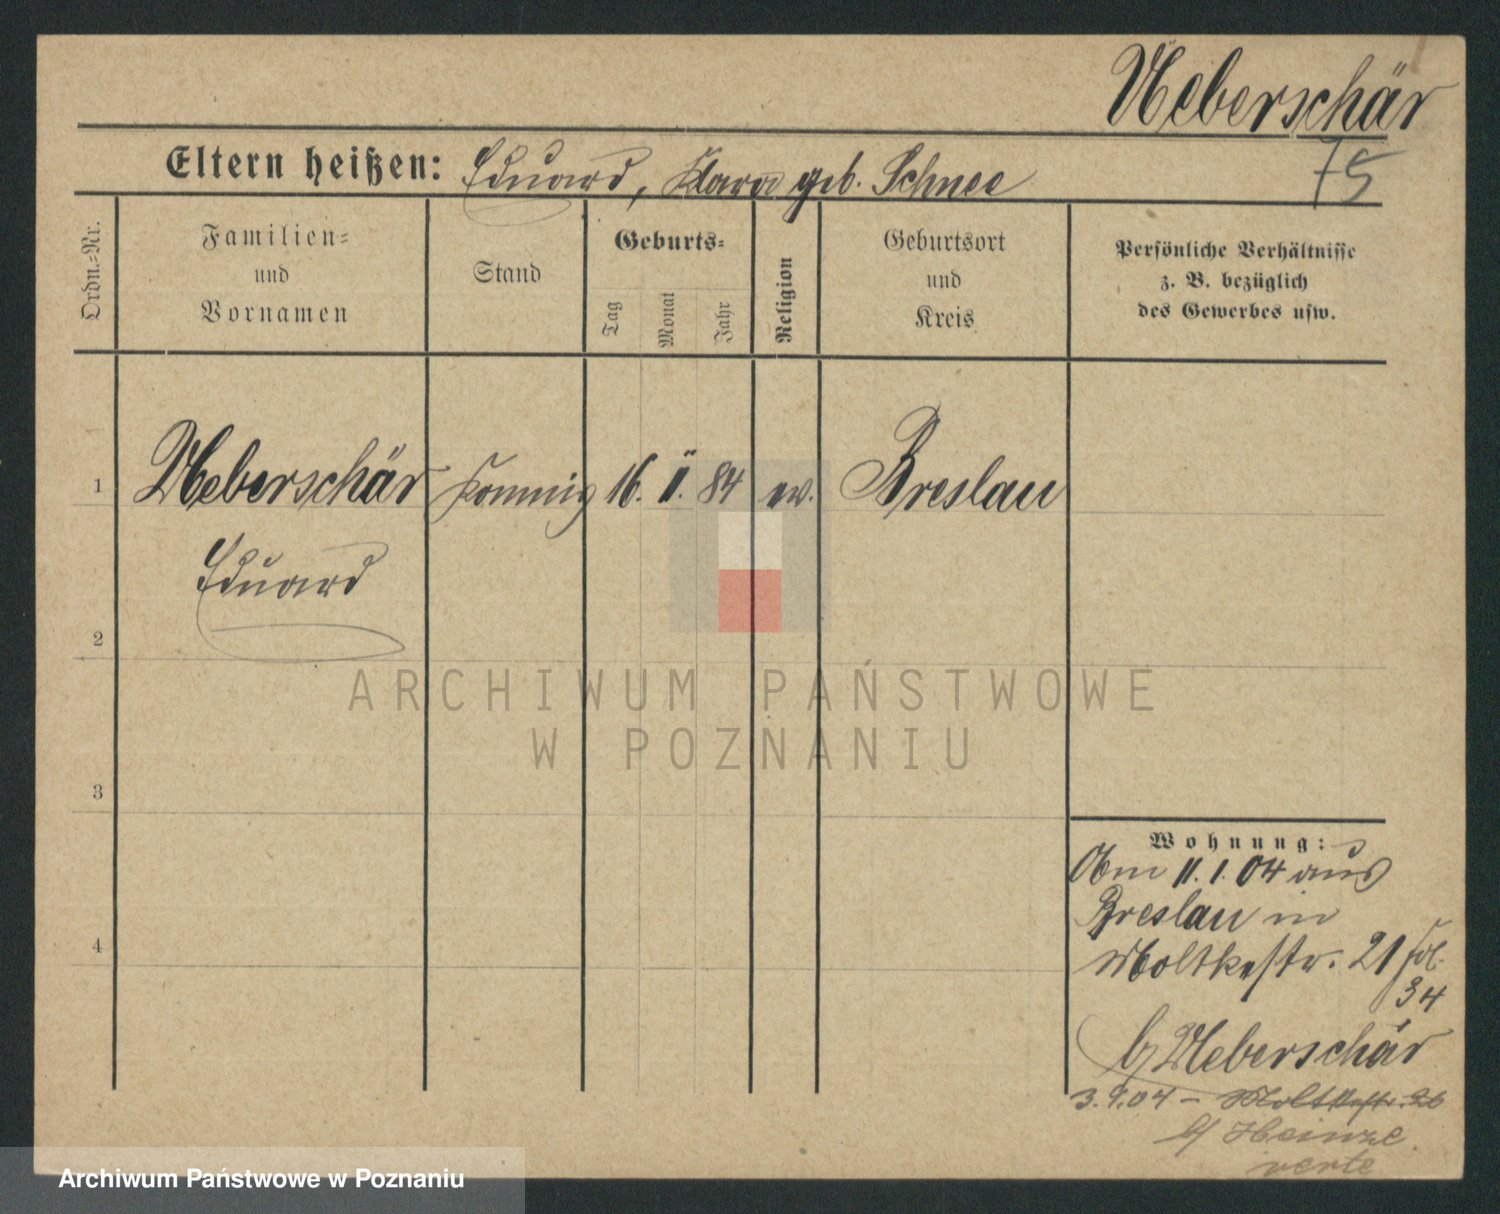 Ueberschär
75
Eltern heißen: Eduard, Klara geb. Schnee
Ordn.=Nr.
Familien=
und
Vornamen
Stand
Geburts=
Tag
Monat
Jahr
Religion
Geburtsort
und
Kreis
Persönliche Verhältnisse
z. B. bezüglich
des Gewerbes usw.
1 Ueberschär Kommis 16. II. 84 ev. Breslau
Eduard
2
3
4
ARCHIWUM PAŃSTWOWE
W POZNANIU
Wohnung:
11.1.04 aus
Breslau in
Moltkestr. 21
34
b/ Ueberschär
3.9.04 – Moltkestr. 26
b/ Heinze
verte
Archiwum Państwowe w Poznaniu